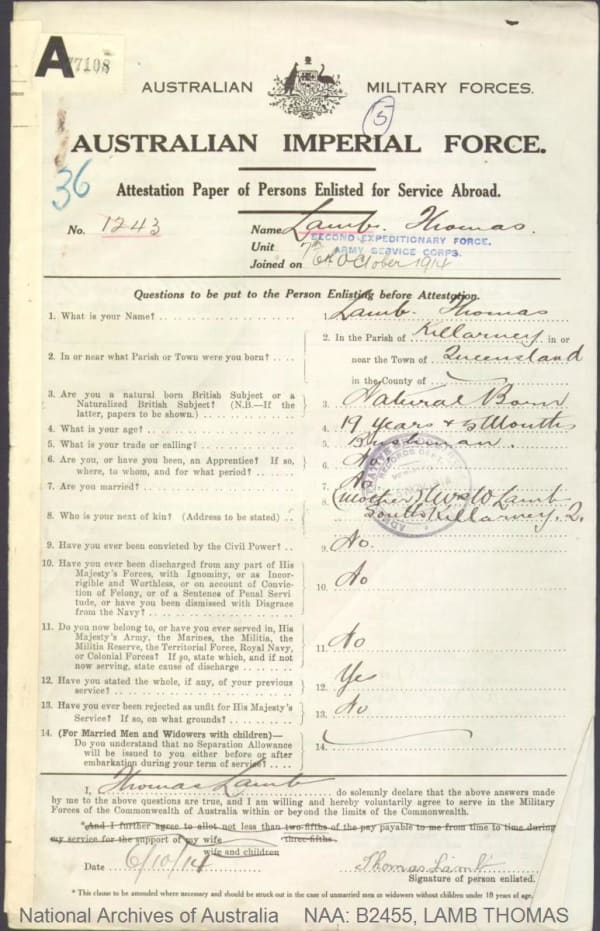 A 77108
AUSTRALIAN MILITARY FORCES.
5
AUSTRALIAN IMPERIAL FORCE.
36
Attestation Paper of Persons Enlisted for Service Abroad.
No. 1243 Name Lamb. Thomas.
Unit SECOND EXPEDITIONARY FORCE.
ARMY SERVICE CORPS.
Joined on October 1914
Questions to be put to the Person Enlisting before Attestation.
1. What is your Name? 1. Lamb. Thomas
2. In or near what Parish or Town were you born? 2. In the Parish of Killarney in or
near the Town of Queensland
in the County of
3. Are you a natural born British Subject or a
Naturalized British Subject? (N.B.—If the
latter, papers to be shown.) 3. Natural Born
4. What is your age? 4. 19 years + 5 Months
5. What is your trade or calling? 5. Bushman.
6. Are you, or have you been, an Apprentice? If so,
where, to whom, and for what period? 6. No.
7. Are you married? 7. No
8. Who is your next of kin? (Address to be stated) 8. (Mother) Lamb
South Killarney. Q.
9. Have you ever been convicted by the Civil Power? 9. No.
10. Have you ever been discharged from any part of His
Majesty's Forces, with Ignominy, or as Incor-
rigible and Worthless, or on account of Convic-
tion of Felony, or of a Sentence of Penal Servi
tude, or have you been dismissed with Disgrace
from the Navy? 10. No
11. Do you now belong to, or have you ever served in, His
Majesty's Army, the Marines, the Militia, the
Militia Reserve, the Territorial Force, Royal Navy,
or Colonial Forces? If so, state which, and if not
now serving, state cause of discharge 11. No
12. Have you stated the whole, if any, of your previous
service? 12. Yes
13. Have you ever been rejected as unfit for His Majesty's
Service? If so, on what grounds? 13. No
14. (For Married Men and Widowers with children)—
Do you understand that no Separation Allowance
will be issued to you either before or after
embarkation during your term of service? 14.
I, Thomas Lamb do solemnly declare that the above answers made
by me to the above questions are true, and I am willing and hereby voluntarily agree to serve in the Military
Forces of the Commonwealth of Australia within or beyond the limits of the Commonwealth.
*And I further agree to allot not less than two-fifths of the pay payable to me from time to time during
my service for the support of my wife three-fifths.
wife and children
Date 6/10/14 Thomas Lamb
Signature of person enlisted.
* This clause to be amended where necessary and should be struck out in the case of unmarried men or widowers without children under 18 years of age.
National Archives of Australia NAA: B2455, LAMB THOMAS